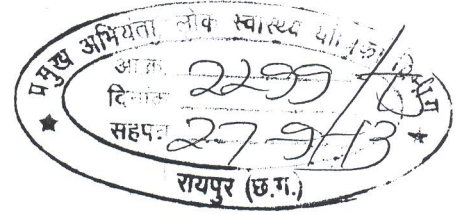 प्रमुख अभियंता लोक स्वास्थ्य यांत्रिकी विभाग
आ.क्र.
दिनांक
सहपत्र 27-9-13
रायपुर (छ.ग.)